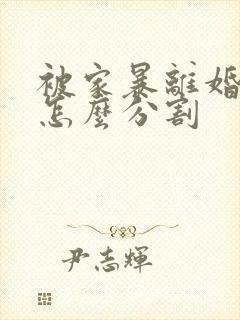 被家暴離婚
怎麼分割
尹志輝